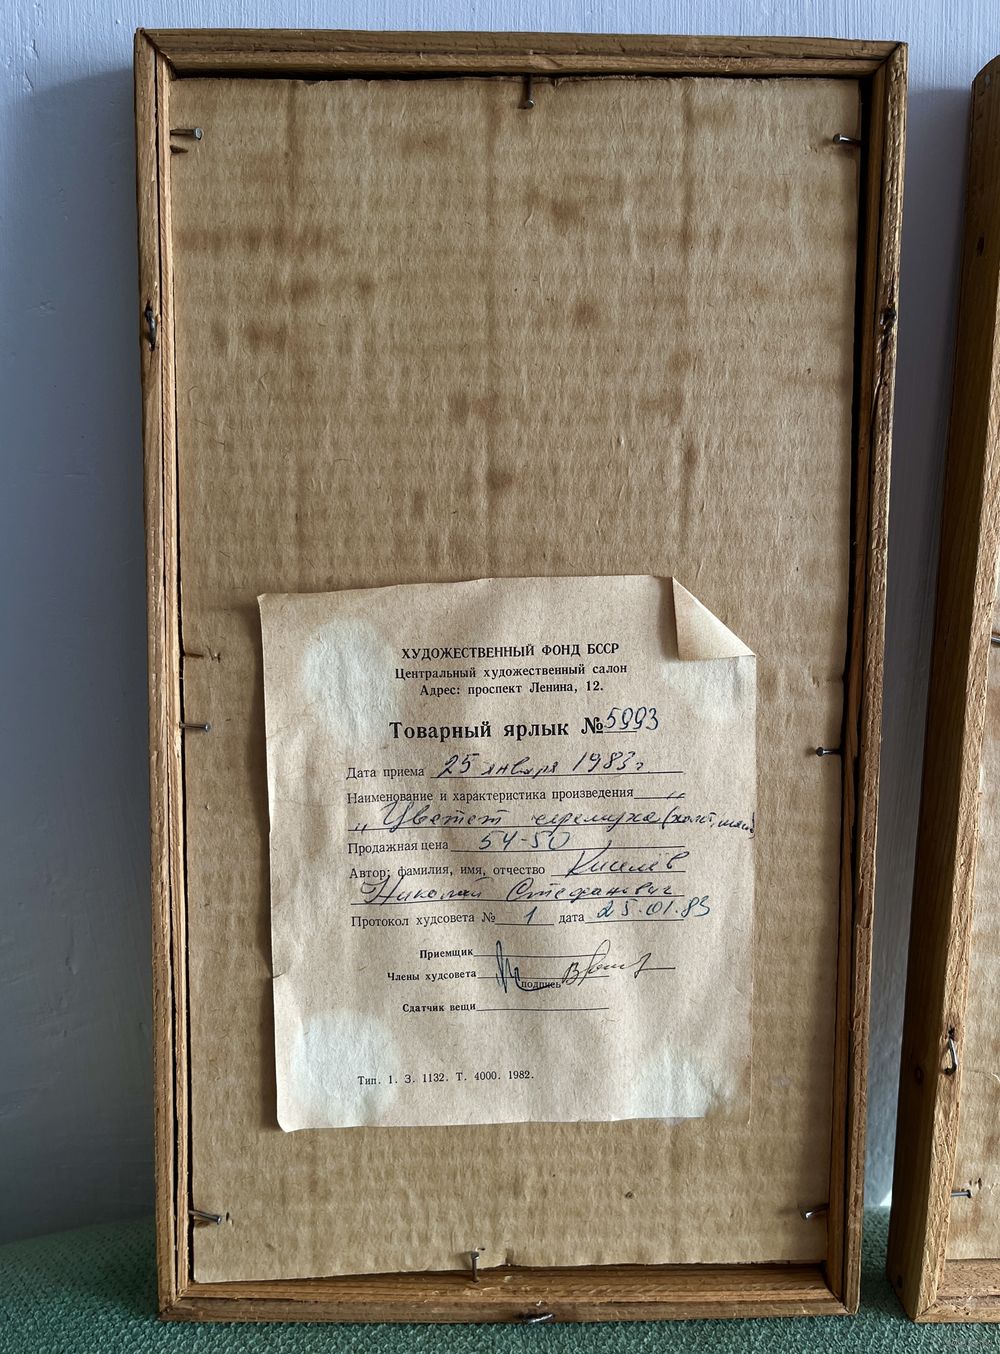 ХУДОЖЕСТВЕННЫЙ ФОНД БССР
Центральный художественный салон
Адрес: проспект Ленина, 12.
Товарный ярлык № 5993
Дата приема 25 января 1983 г.
Наименование и характеристика произведения „
„Цветет черемуха (холст, масло)
Продажная цена 54-50
Автор; фамилия, имя, отчество Киселёв
Николай Стефанович
Протокол худсовета № 1 дата 25.01.83
Приемщик
Члены худсовета
подпись
Сдатчик вещи
Тип. 1. З. 1132. Т. 4000. 1982.